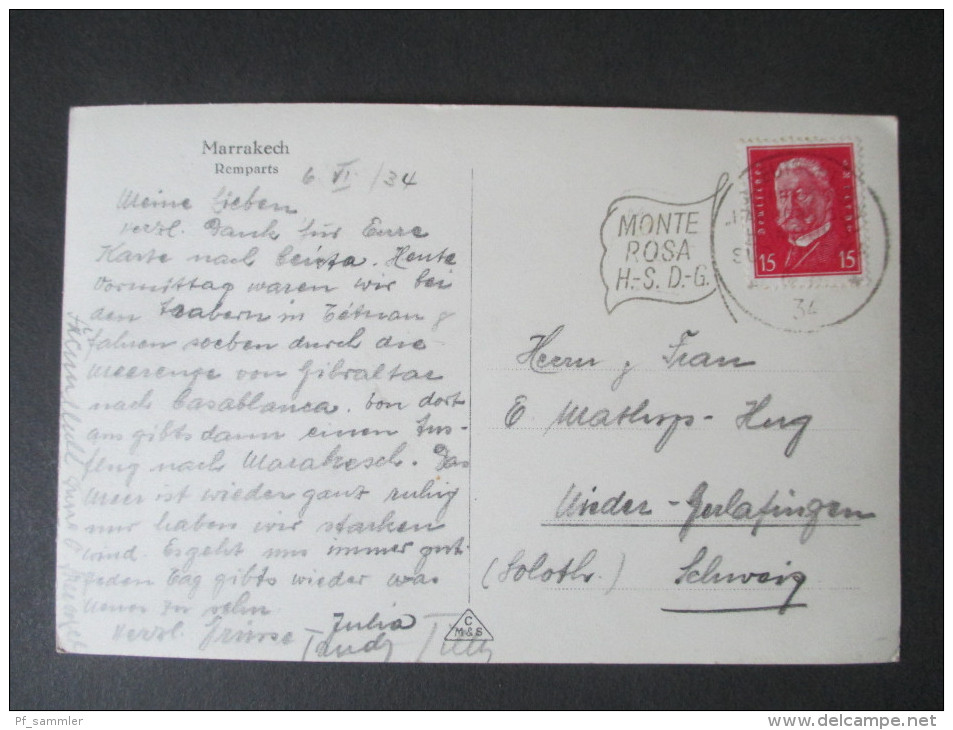 Marrakech
Remparts
6 VI /34
Meine Lieben
Herzl. Dank für Eure
Karte nach Ceuta. Heute
Vormittag waren wir bei
den Arabern in Tétuan &
fahren soeben durch die
Meerenge von Gibraltar
nach Casablanca. Von dort
aus gibts dann einen Aus-
flug nach Marakesch. Das
Meer ist wieder ganz ruhig
nur haben wir starken
Wind. Es geht uns immer gut.
Jeden Tag gibts wieder was
neues zu sehn
Herzl. Grüsse Julia
MONTE
ROSA
H.-S. D.-G.
34
Deutsches Reich
15 15
Herrn & Frau
E
Hug
Nieder-Gerlafingen
(Soloth.) Schweiz
C
M&S
Pf_sammler
www.delcampe.net